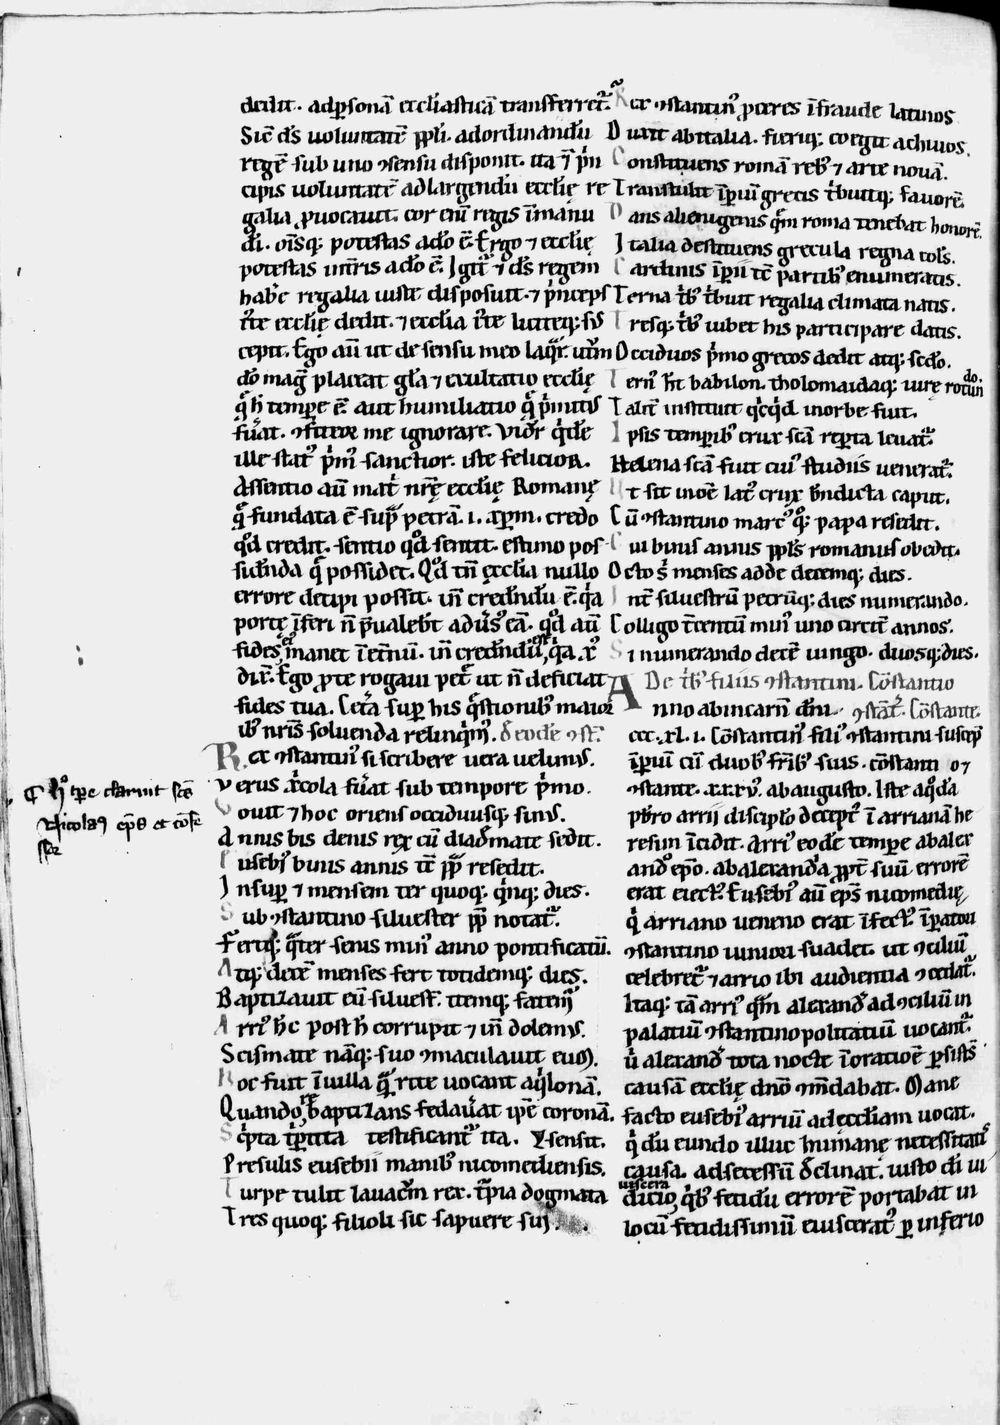 dedit. adpsonā eccl̄iasticā transferret᷑.
Sic̄ d̄s uoluntatē pp̄li. adordinandū
regē sub uno ꝯsensu disponit. ita ⁊ p̄n
cipis uoluntatē adlargendū eccl̄ię re
galia ꝓuocauit. cor eni regis ī manu
dī. ōisq; potestas ado ē. Ergo ⁊ eccl̄ię
potestas ado ē. Igit᷑ ⁊ d̄s regem
regalia iuste disposuit. ⁊ p̄nceps
eccl̄ię dedit. ⁊ eccl̄ia
cepit. Ego aū ut de sensu meo
placeat gl̄a ⁊ exultatio eccl̄ię
tempore ē aut humiliatio
me ignorare.
ille stat᷑ p̄m᷑ sanctior. iste felicior.
Assentio aū nr̄ę eccl̄ię Romanę
fundata ē sup petrā .i. xp̄m. credo
qd credit. sentio qd sentit. estimo pos
sidenda q̄ possidet. Qd tn̄ eccl̄ia nullo
errore decipi possit. credendū ē. q̇a
portę īferi n̄ p̄ualebt aduersus eā. qd aū
fides manet īet̄nū. credendū est, q̇a
Ergo ꝓ te rogaui pet᷑ ut n̄ deficiat
fides tua. Cet̄a sup his q̄stionib᷑ maiori
ib᷑ nr̄is soluenda relinqm᷑.
Rex ꝯstantin᷑ si scribere uera uelim᷑.
Verus xp̄icola fuat sub tempore p̄mo.
Vouit ⁊ hoc oriens occiduusq; simus.
Annis bis denis rex cū diadmate sedit.
Eusebi᷑ binis annis pp̄ resedit.
Insup ⁊ mensem ter quoq; q̇nq; dies.
Sub ꝯstantino siluester pp̄ notat᷑.
Fertq; q̇ter senis anno pontificatū.
Atq; decē menses fert totidemq; dies.
Baptizauit eū siluest᷑. itemq; fatem᷑
Arri᷑ posth corrupit ⁊ dolem᷑.
Scismate nāq; suo ꝯmaculauit
Hoc fuit ī uilla q̄ rite uocant aq̇lonā.
Quando rebaptizans fedauat ip̄e coronā.
Scripta testificant᷑ ita.
Presulis eusebii manib᷑ nicomediensis.
Turpe tulit lauacrm rex. dogmata
Tres quoq; filioli sic sapuere sui.
Rex ꝯstantin᷑ proceres ī fraude latinos
Duxit abitalia. fieriq; coegit achiuos.
Constituens romā reb᷑ ⁊ arte nouā.
Transtulit īpiū grecis t̄buitq; fauorē.
Dans alienigenis qm̄ roma tenebat honorē.
Italia destituens grecula regna
Cardinis īpii tē partib᷑ enumeratis.
Terna t̄b᷑ t̄buit regalia climata natis.
Tresq; t̄b᷑ iubet his participare datis.
Occiduos p̄mo grecos dedit atq; scdo.
Terni᷑ babilon. tholomaidaq; iure rotun
do.
Talit̄ instituit q̇cq̇d inorbe fuit.
Ipsis temporib᷑ crux scā reperta leuat᷑.
Helena scā fuit cui᷑ studiis uenerat᷑.
Ut sit inoē lat᷑ crux bn̄dicta caput.
Cū ꝯstantino marc᷑ qoq; papa resedit.
Cui binis annis pp̄ls romanus obedit.
Octo s; menses adde decemq; dies.
Int̄ siluestrū petrūq; dies numerando.
Colligo t̄centū uno circit̄ annos.
Si numerando decē uiginti. duosq; dies.
De trib᷑ filiis ꝯstantini. Cōstantio
Anno abincarn̄ dn̄i. ꝯstāt. Cōstante
ccc. xl. i. Cōstantin᷑ fili᷑ ꝯstantini suscep
īpiū cū duob᷑ fr̄ib᷑ suis. cōstanti o ⁊
ꝯstante. ab augusto. Iste aq̇dā
pb̄ro arrii disciplo decept᷑ ī arrianā he
resim īcidit. Arri᷑ eodē tempore abalex
andro ep̄o. abalexandria ꝓpt̄ suū errorē
erat eiect᷑. Eusebi᷑ aū ep̄s nicomedię
q̇ arriano ueneno erat īfect᷑. īpatori
ꝯstantino iuniori suadet. ut ꝯciliū
celebret᷑ ⁊ arrio ibi audientia ꝯcedat᷑.
Itaq; tā arri᷑ qm̄ alexandr ad ꝯciliū in
palatiū ꝯstantinopolitanū uocant᷑.
ū alexandr tota nocte ī oratiōe psist̄s
causā eccl̄ię dn̄o ꝯmdabat. Mane
facto eusebi᷑ arriū adeccl̄iam uocat.
q̇ dū eundo illuc humanę necessitatis
causa. adsecessū declinat. iusto dī iu
dicio, uiscera q̇b᷑ fetidū errorē portabat in
locū fetidissimū euiscerat᷑ p inferio
¶ Hoc tpe claruit scs
Nicola9 ep̄s et cōfe
ssor